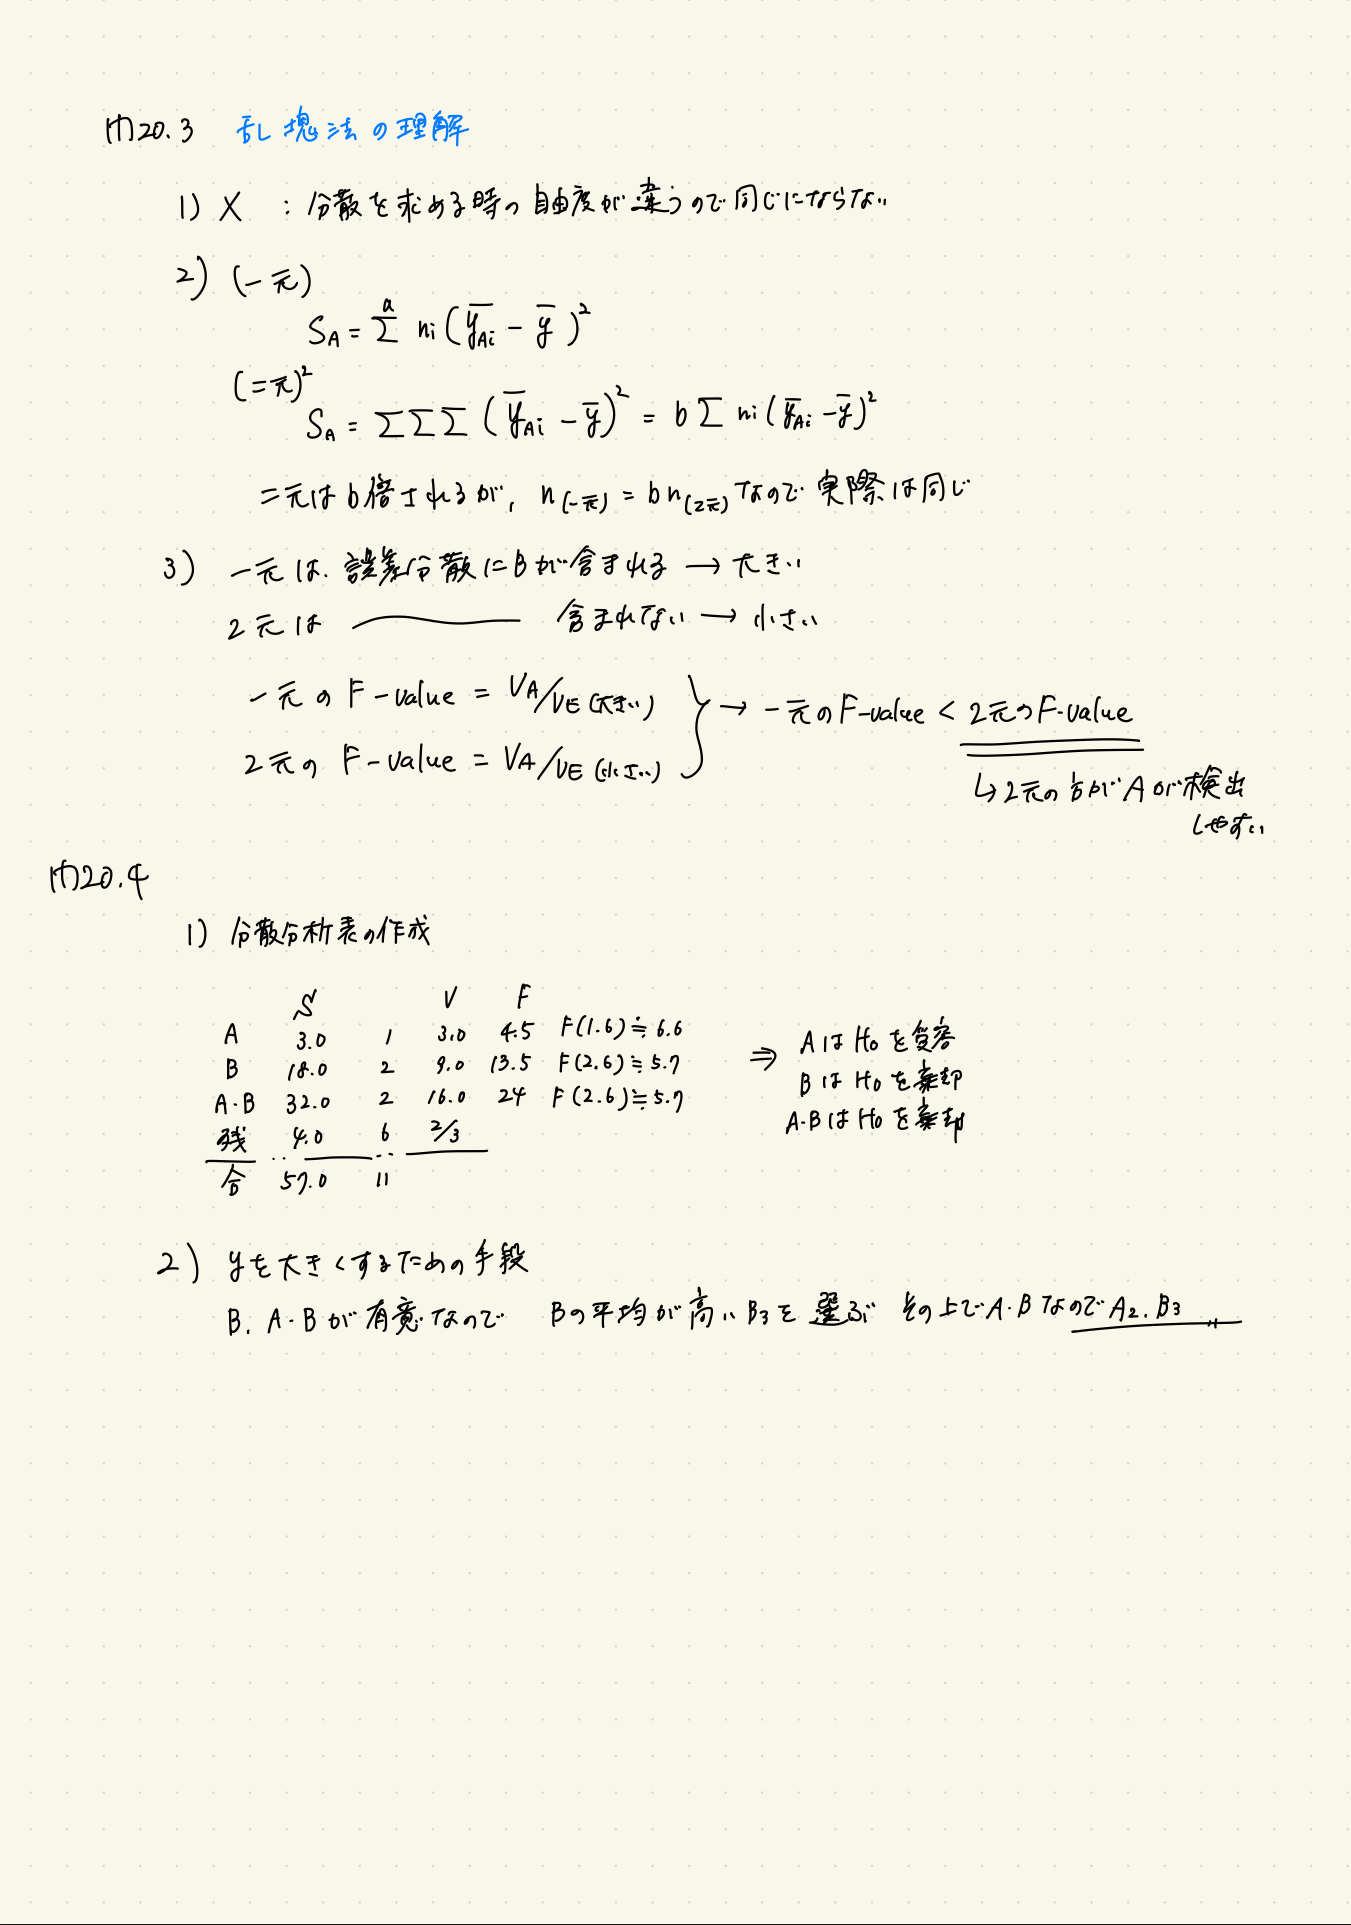 例20.3 乱塊法の理解
1) X : 分散を求める時の自由度が違うので同じにならない
2) (一元)
S_A = Σ^a ni(ȳ_Ai - ȳ)²
(二元)²
S_A = ΣΣΣ(ȳ_Ai - ȳ)² = bΣ ni(ȳ_Ai - ȳ)²
二元はb倍されるが, n(一元) = bn(2元)なので実際は同じ
3) 一元は. 誤差分散にBが含まれる → 大きい
2元は 含まれない → 小さい
一元のF-value = VA/VE(大きい)
2元のF-value = VA/VE(小さい)
→ 一元のF-value < 2元のF-value
↳ 2元の方がAが検出
しやすい
例20.4
1) 分散分析表の作成
S V F
A 3.0 1 3.0 4.5 F(1.6)≒6.6
B 18.0 2 9.0 13.5 F(2.6)≒5.7
A・B 32.0 2 16.0 24 F(2.6)≒5.7
残 4.0 6 2/3
合 57.0 11
⇒ AはH0を受容
BはH0を棄却
A・BはH0を棄却
2) yを大きくするための手段
B. A・Bが有意なので Bの平均が高いB3を選ぶ その上でA・BなのでA2. B3